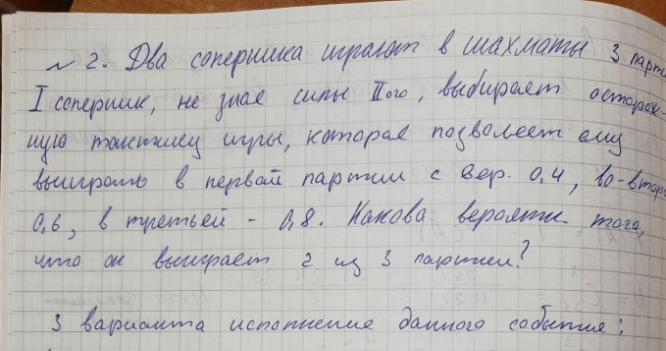 № 2. Два соперника играют в шахматы 3 парти
I соперник, не зная силы IIого, выбирает осторож-
ную тактику игры, которая позволяет ему
выиграть в первой партии с вер. 0,4, во-втор
0,6, в третьей - 0,8. Какова вероятн. того,
что он выиграет 2 из 3 партии?
3 варианта исполнение данного события: